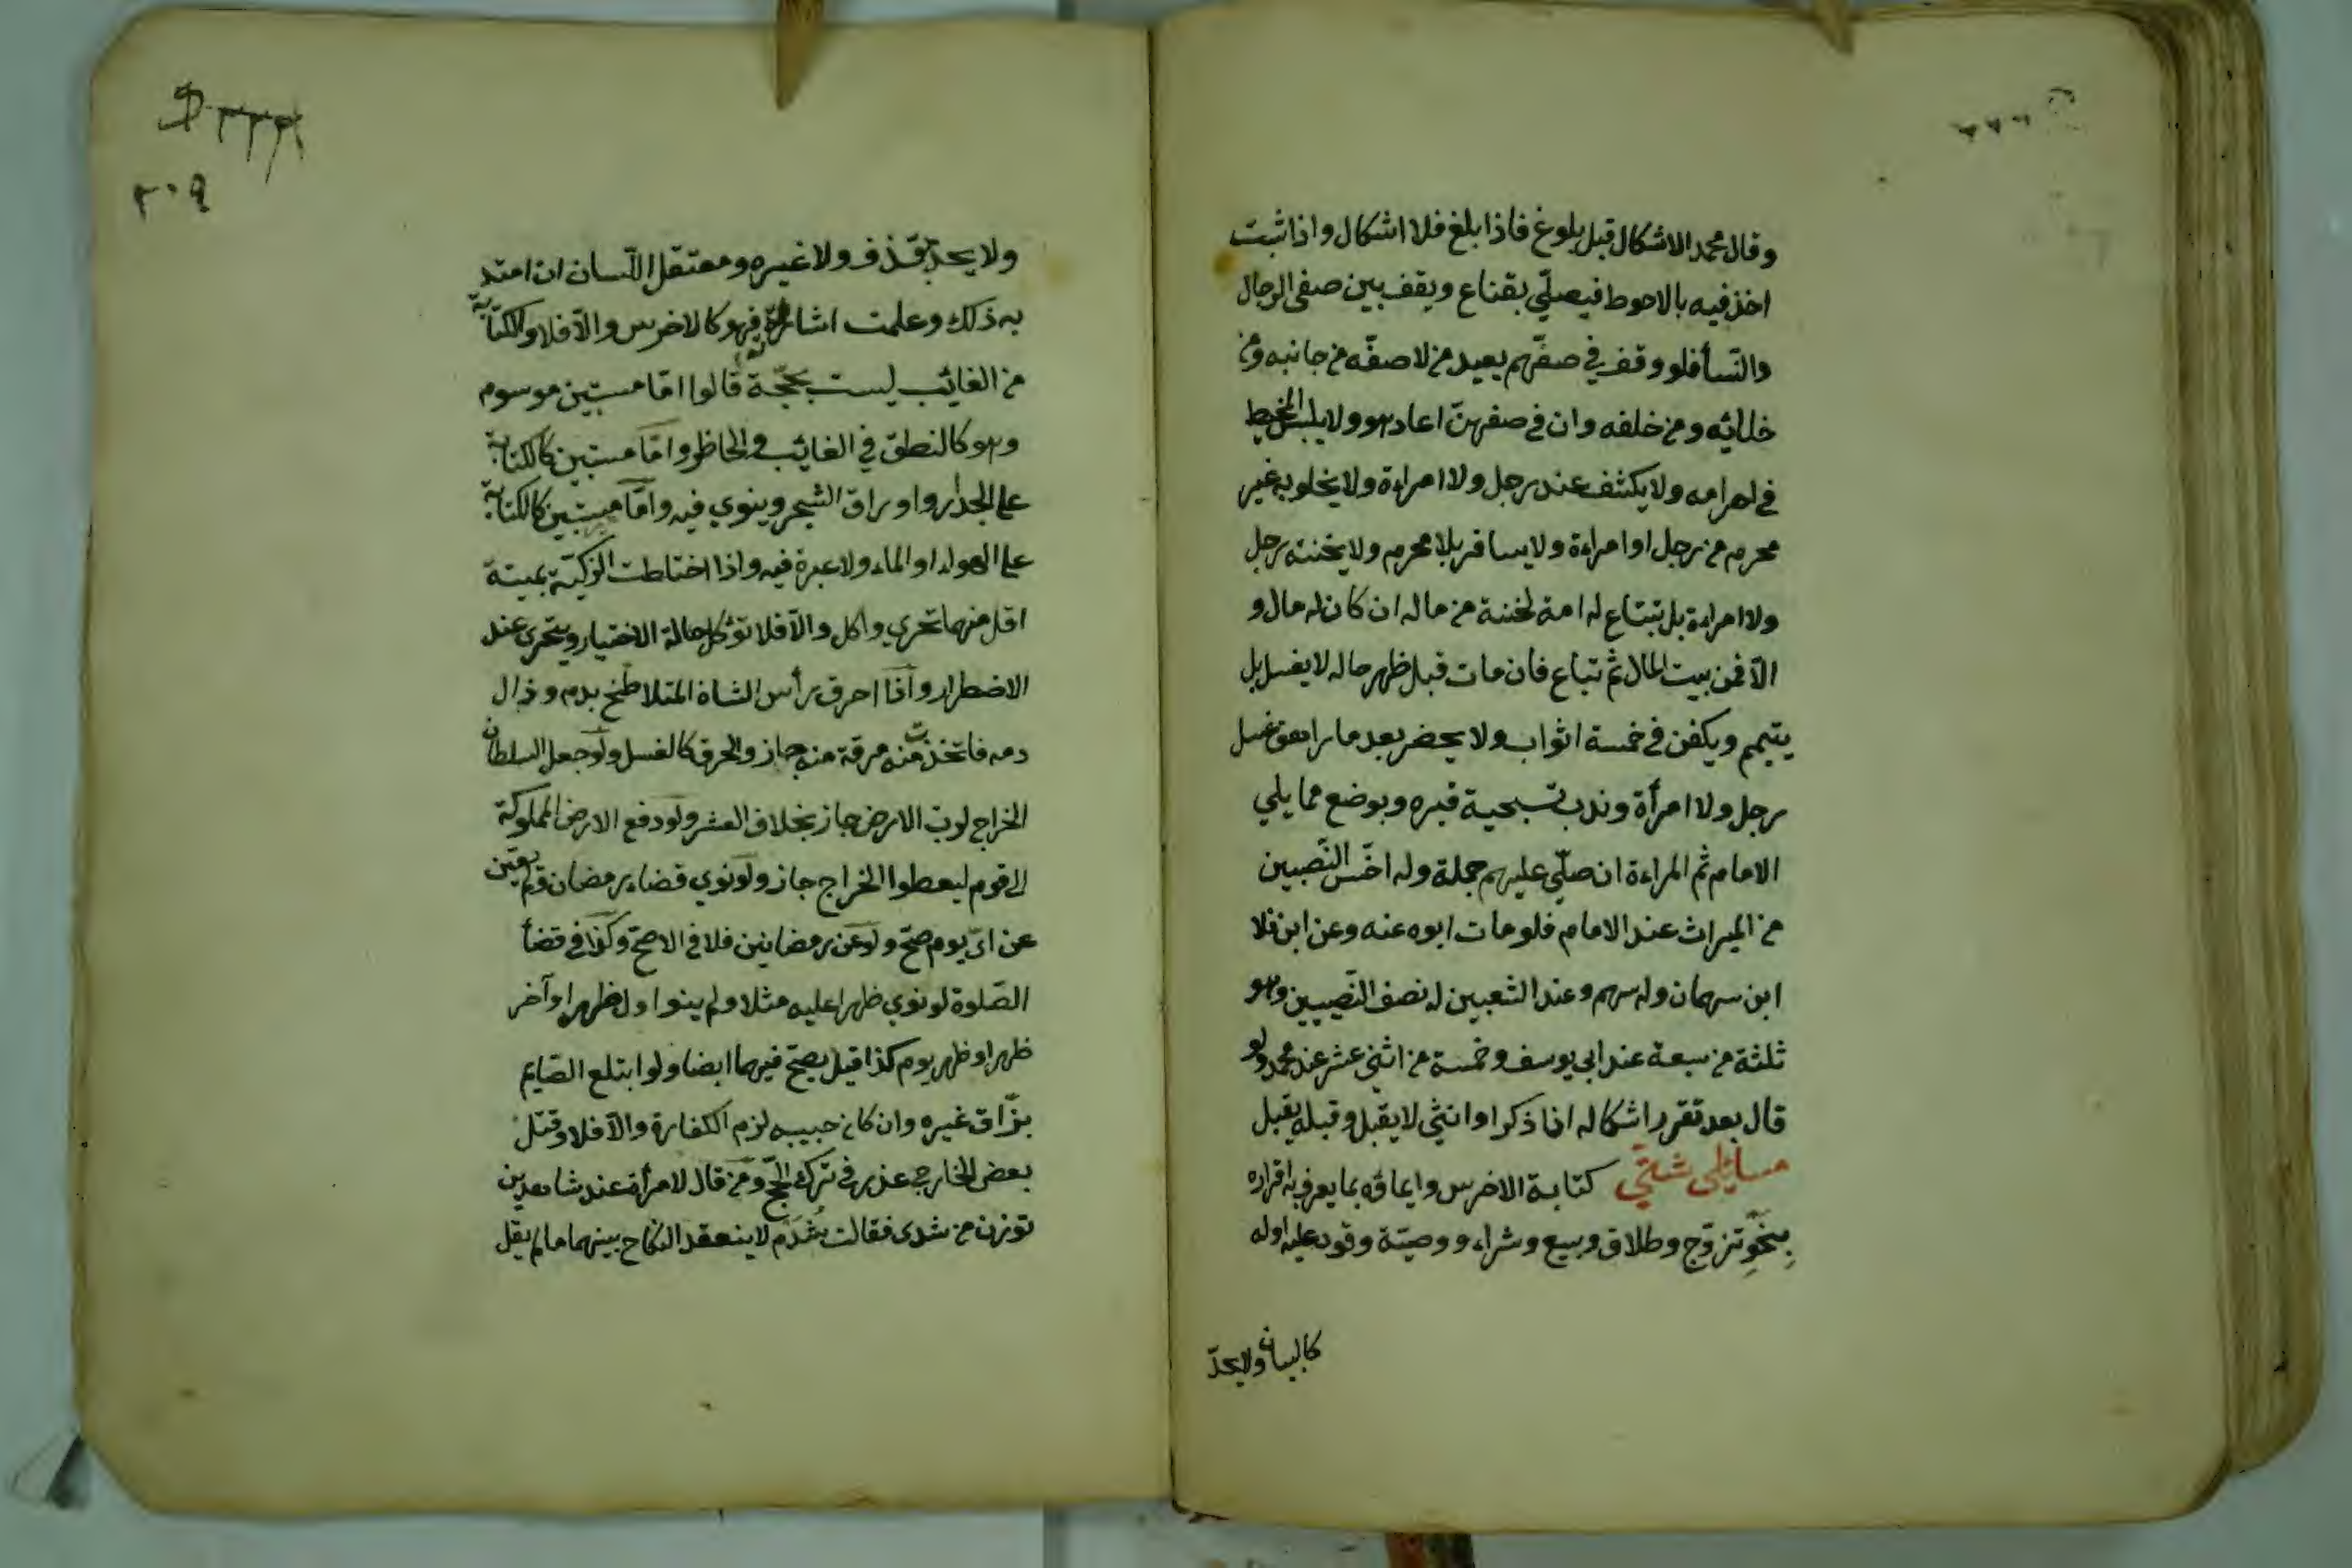 وقال محمد الاشكال قبل بلوغ فاذا بلغ فلا اشكال واذا ثبت
اخذ فيه بالاحوط فيصلّي بقناع ويقف بين صفى الرجال
والنّسأ فلو وقف في صفّهم يعيد من لاصفّه من جانبه ومن
خلائه ومن خلفه وان في صفهنّ اعاد هو ولا يلبس المخيط
في احرامه ولا يكشف عند رجل ولا امراءة ولا يخلو به غير
محرم من رجل او امراءة ولا يسافر بلا محرم ولا يختنه رجل
ولا امراءة بل تبتاع له امة لختنة من ماله ان كان له مال و
الّا فمن بيت المال ثم تباع فان مات قبل ظهر حاله لا يغسل بل
يتيمم ويكفن في خمسة اثواب ولا يحضر بعد ما راهق غسل
رجل ولا امرأة وندب تسبحية قبره ويوضع مما يلي
الامام ثم المراءة ان صلّي عليهم جملة وله اخسّ النّصيبين
من الميراث عند الامام فلو مات ابوه عنه وعن ابن فلا
ابن سهمان وله سهم وعند الشعبين له نصف النّصيبين وهو
ثلثة من سبعة عند ابي يوسف وخمسة من اثني عشر عند محمد ولو
قال بعد تقرر اشكاله انا ذكر او انثى لا يقبل وقبله يقبل
مسائل شتّي كتابة الاخرس وايماؤه بما يعرف به اقراره
بنحو تزوّج وطلاق وبيع وشراء ووصيّة وقود عليه اوله
كالبيان ولا يحدّ
٢٠٩
ولا يحد بقذف ولا غيره ومعتقل اللّسان ان امتد
به ذلك وعلمت اشارته فهو كالاخرس والّا فلا والكتابة
من الغائب ليست بحجّة قالوا امّا مستبين موسوم
وهو كالنطق في الغائب والحاظر وامّا مستبين كالكتابة
على الجدار واوراق الشجر وينوي فيه وامّا مستبين كالكتابة
على الهواء او الماء ولا عبرة فيه واذا اختاطت الزكيّة بميتة
اقل منها تحري واكل والّا فلا تؤكل حالة الاختيار ويتحرى عند
الاضطرار واذا احرق رأس الشاة المتلاطخ بدم وزال
دمه فاتخذت منه مرقة منه جاز والحرق كالغسل ولو جعل السلطان
الخراج لوب الارض جاز بخلاف العشر ولو دفع الارض المملوكة
الى قوم ليعطوا الخراج جاز ولو نوي قضاء رمضان ولم يعيّن
عن ايّ يوم صحّ ولو عن رمضانين فلا في الاصحّ وكذا في قضأ
الصّلوة لو نوي ظهرا عليه مثلا ولم ينو اول ظهر او آخر
ظهر او ظهر يوم كذا قيل يصحّ فيهما ايضا ولو ابتلع الصّايم
بزّاق غيره وان كان حبيبه لزم الكفارة والّا فلا وقتل
بعض الخارجي عذر في ترك الحجّ ومن قال لامرأة عند شاهدين
توزن من شدى فقالت شدم لا ينعقد النكاح بينهما ما لم يقل